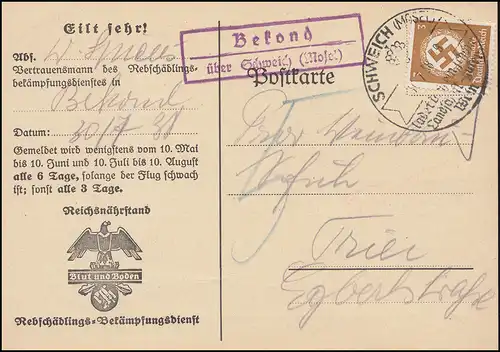 Eilt sehr!
Abs.
Vertrauensmann des Rebschädlings-
bekämpfungsdienstes in
Bekond
Datum: 30/7 38
Gemeldet wird wenigstens vom 10. Mai
bis 10. Juni und 10. Juli bis 10. August
alle 6 Tage, solange der Flug schwach
ist; sonst alle 3 Tage.
Reichsnährstand
Blut und Boden
Rebschädlings-Bekämpfungsdienst
Bekond
über Schweich (Mosel)
Postkarte
SCHWEICH (MOSEL)
3
Deutsches Reich
Trier
Egbertstraße